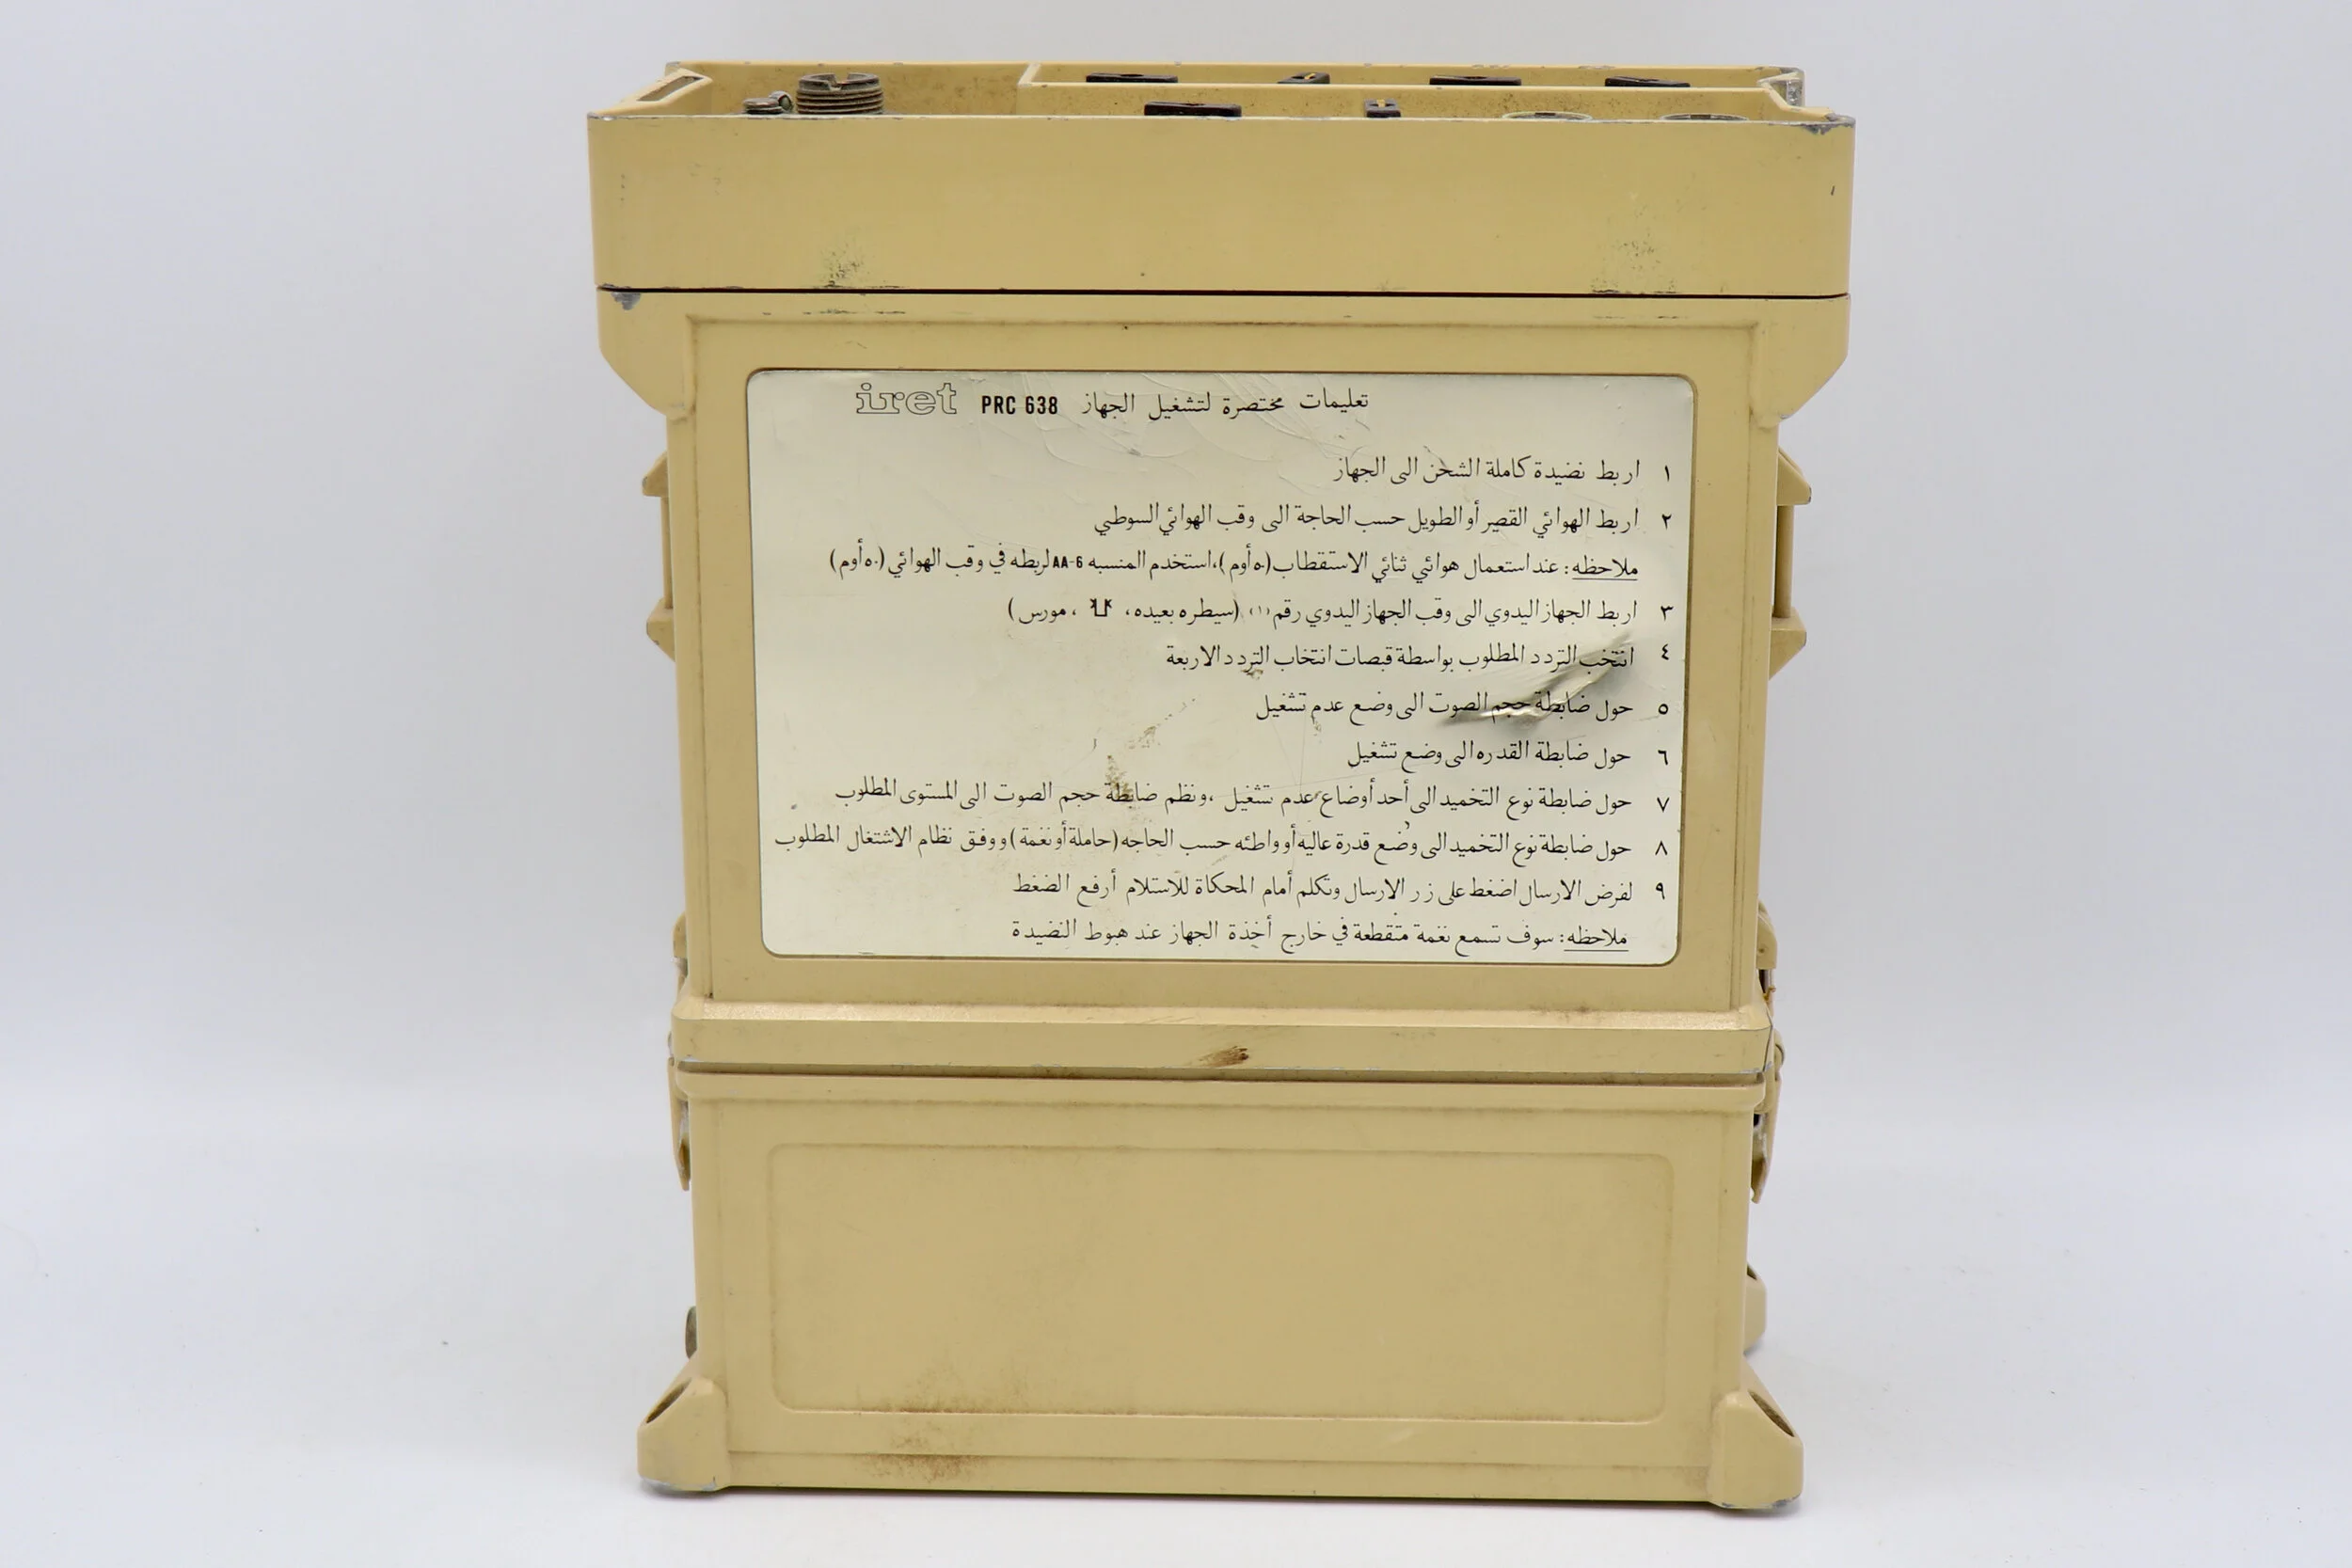 تعليمات مختصرة لتشغيل الجهاز PRC 638 iret
١ اربط نضيدة كاملة الشحن الى الجهاز
٢ اربط الهوائي القصير أو الطويل حسب الحاجة الى وقب الهوائي السوطي
ملاحظه: عند استعمال هوائي ثنائي الاستقطاب (٥٠ أوم)، استخدم المنسبه AA-6 لربطه في وقب الهوائي (٥٠ أوم)
٣ اربط الجهاز اليدوي الى وقب الجهاز اليدوي رقم (١) (سيطره بعيده، ، مورس)
٤ انتخب التردد المطلوب بواسطة قبصات انتخاب التردد الاربعة
٥ حول ضابطة حجم الصوت الى وضع عدم تشغيل
٦ حول ضابطة القدره الى وضع تشغيل
٧ حول ضابطة نوع التخميد الى أحد أوضاع عدم تشغيل ،ونظم ضابطة حجم الصوت الى المستوى المطلوب
٨ حول ضابطة نوع التخميد الى وضع قدرة عاليه أو واطئه حسب الحاجه (حاملة أو نغمة) ووفق نظام الاشتغال المطلوب
٩ لفرض الارسال اضغط على زر الارسال وتكلم أمام المحكاة للاستلام أرفع الضغط
ملاحظه: سوف تسمع نغمة متقطعة في خارج أخذة الجهاز عند هبوط النضيدة